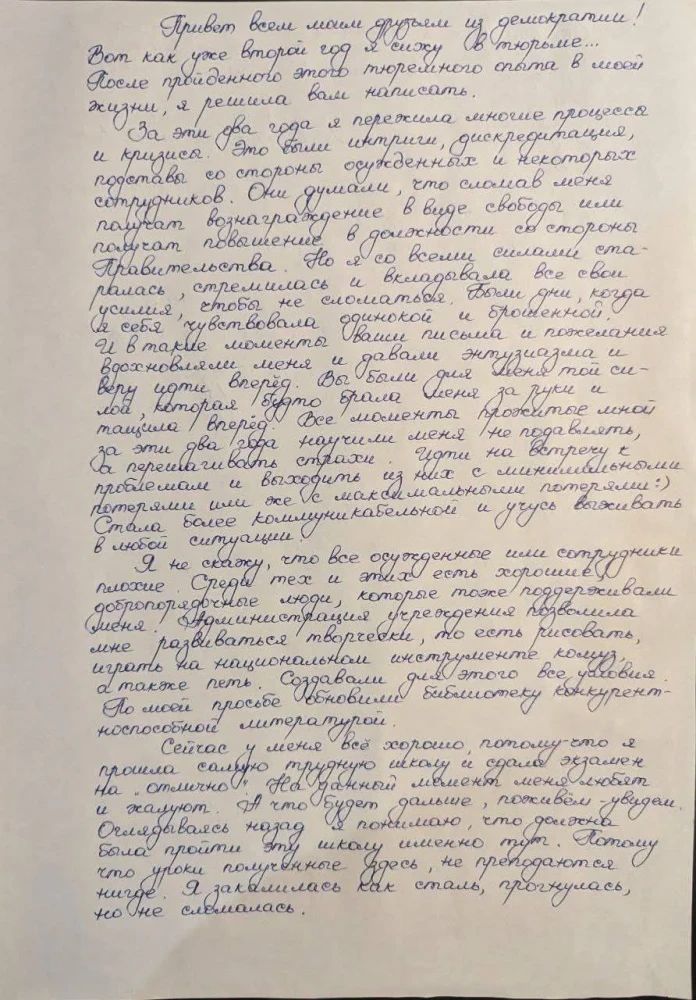 Привет всем моим друзьям из демократии!
Вот как уже второй год я сижу в тюрьме...
После пройденного этого тюремного опыта в моей
жизни, я решила вам написать.
За эти два года я пережила многие процессы
и кризисы. Это были интриги, дискредитация,
подставы со стороны осужденных и некоторых
сотрудников. Они думали, что сломав меня
получат вознаграждение в виде свободы или
получат повышение в должности со стороны
Правительства. Но я со всеми силами ста-
ралась, стремилась и вкладывала все свои
усилия, чтобы не сломаться. Были дни, когда
я себя чувствовала одинокой и брошенной.
И в такие моменты ваши письма и пожелания
вдохновляли меня и давали энтузиазма и
веру идти вперёд. Вы были для меня той си-
лой, которая будто брала меня за руки и
тащила вперёд. Все моменты прожитые мной
за эти два года научили меня не подавлять,
а перешагивать страхи. Идти на встречу к
проблемам и выходить из них с минимальными
потерями или же с максимальными потерями :)
Стала более коммуникабельной и учусь выживать
в любой ситуации.
Я не скажу, что все осужденные или сотрудники
плохие. Среди тех и этих есть хорошие,
добропорядочные люди, которые тоже поддерживали
меня. Администрация учреждения позволила
мне развиваться творчески, то есть рисовать,
играть на национальном инструменте комуз,
а также петь. Создавали для этого все условия.
По моей просьбе обновили библиотеку конкурент-
носпособной литературой.
Сейчас у меня всё хорошо, потому-что я
прошла самую трудную школу и сдала экзамен
на „отлично". На данный момент меня любят
и жалуют. А что будет дальше, поживём-увидем.
Оглядываясь назад я понимаю, что должна
была пройти эту школу именно тут. Потому
что уроки полученные здесь, не преподаются
нигде. Я закалилась как сталь, прогнулась,
но не сломалась.